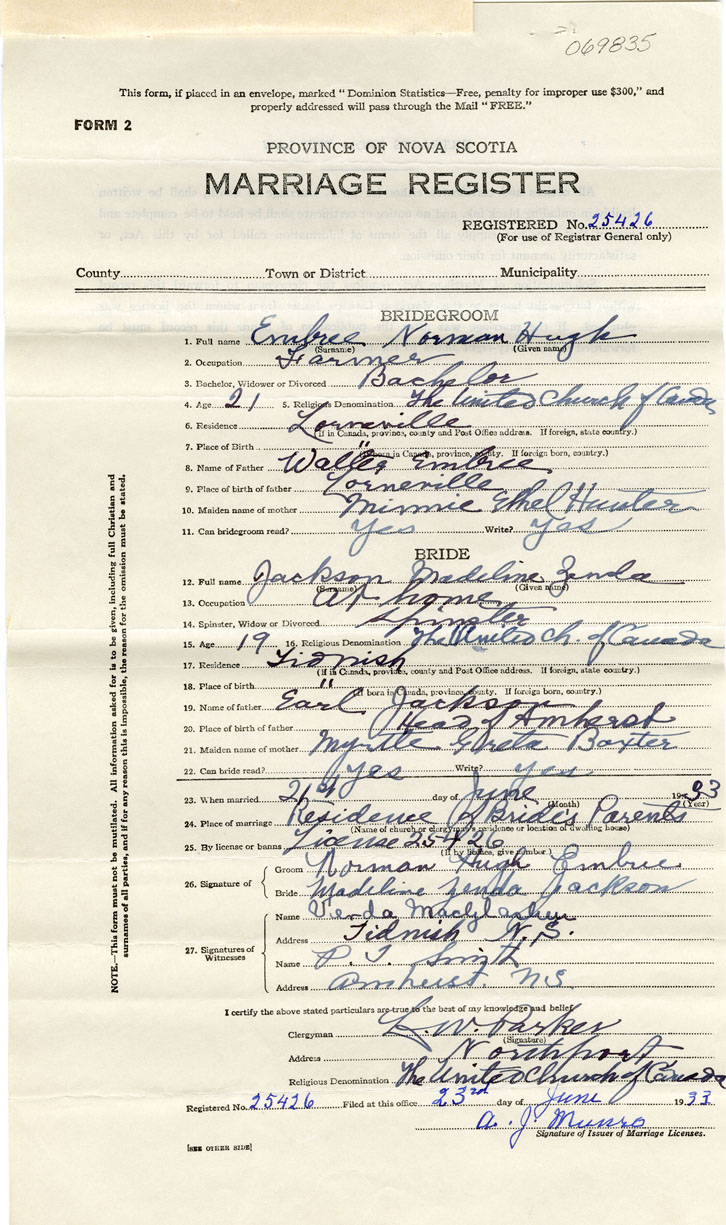 069835
This form, if placed in an envelope, marked "Dominion Statistics—Free, penalty for improper use $300," and
properly addressed will pass through the Mail "FREE."
FORM 2
PROVINCE OF NOVA SCOTIA
MARRIAGE REGISTER
REGISTERED No. 25426
(For use of Registrar General only)
County Town or District Municipality
BRIDEGROOM
1. Full name Embree Norman Hugh
(Surname) (Given name)
2. Occupation Farmer
3. Bachelor, Widower or Divorced Bachelor
4. Age 21 5. Religious Denomination The United Church of Canada
6. Residence Lorneville
(If in Canada, province, county and Post Office address. If foreign, state country.)
7. Place of Birth "
(If born in Canada, province, county. If foreign born, country.)
8. Name of Father Walter Embree
9. Place of birth of father Lorneville
10. Maiden name of mother Minnie Ethel Hunter
11. Can bridegroom read? Yes Write? Yes
BRIDE
12. Full name Jackson Madeline Zenda
(Surname) (Given name)
13. Occupation At home
14. Spinster, Widow or Divorced Spinster
15. Age 19 16. Religious Denomination The United Ch. of Canada
17. Residence Tidnish
(If in Canada, province, county and Post Office address. If foreign, state country.)
18. Place of birth "
(If born in Canada, province, county. If foreign born, country.)
19. Name of father Earl Jackson
20. Place of birth of father Head of Amherst
21. Maiden name of mother Myrtle Greta Baxter
22. Can bride read? Yes Write? Yes
23. When married day of June 1933
(Month) (Year)
24. Place of marriage Residence of Bride's Parents
(Name of church or clergyman's residence or location of dwelling house)
25. By license or banns License 25426
(If by licence, give number.)
26. Signature of Groom Norman Hugh Embree
Bride Madeline Zenda Jackson
27. Signatures of Witnesses Name Verda
Address Tidnish N.S.
Name P. T. Smith
Address Amherst, N.S.
I certify the above stated particulars are true to the best of my knowledge and belief
Clergyman L. W. Parker
(Signature)
Address Northport
Religious Denomination The United Church of Canada
Registered No. 25426 Filed at this office 23rd day of June 1933
A. J. Munro
Signature of Issuer of Marriage Licenses.
[SEE OTHER SIDE]
NOTE.—This form must not be mutilated. All information asked for is to be given, including full Christian and
surnames of all parties, and if for any reason this is impossible, the reason for the omission must be stated.